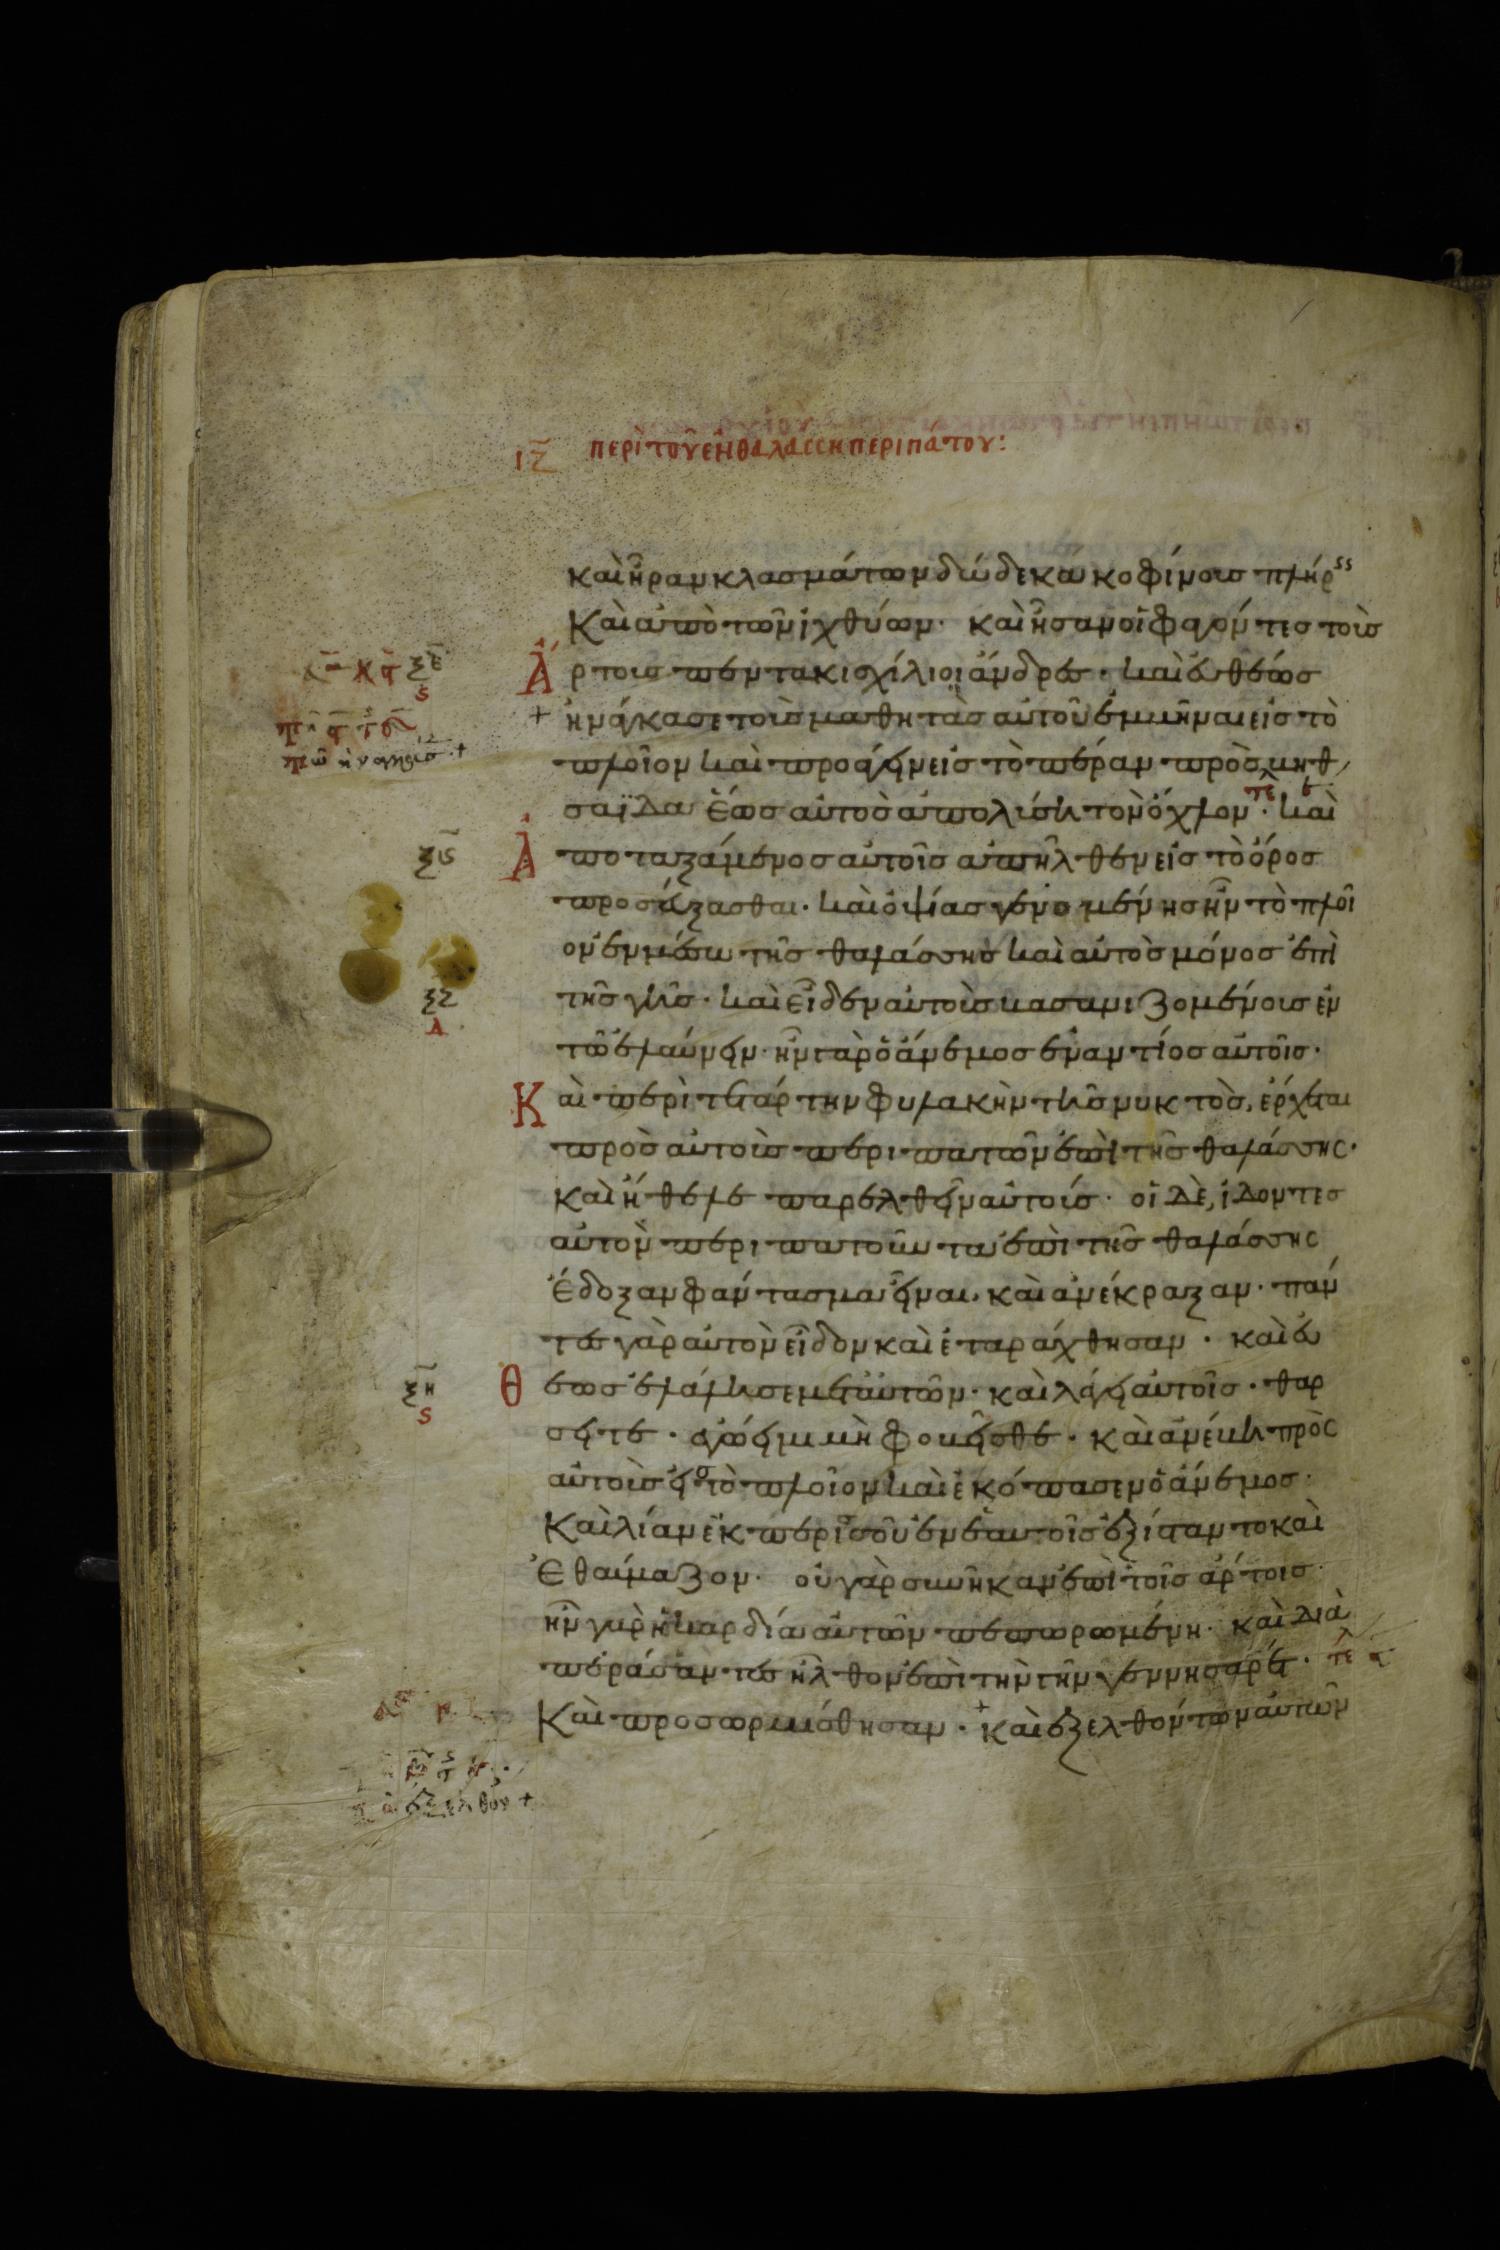 ιζ περὶ τοῦ ἐν θαλάσση περιπάτου:
καὶ ἦραν κλασμάτων δώδεκα κοφίνους πλήρ
Καὶ ἀπὸ τῶν ἰχθύων· καὶ ἦσαν οἱ φαγόντες τοὺς
ἄρτους πεντακισχίλιοι ἄνδρες· καὶ εὐθέως
ξε
ἠνάγκασε τοὺς μαθητὰς αὐτοῦ ἐμβῆναι εἰς τὸ
πλοῖον καὶ προάγειν εἰς τὸ πέραν πρὸς βηθ
σαϊδα ἕως αὐτὸς ἀπολύσῃ τὸν ὄχλον· καὶ
ξς Ἀποταξάμενος αὐτοῖς ἀπῆλθεν εἰς τὸ ὄρος
προσεύξασθαι· καὶ ὀψίας γενομένης ἦν τὸ πλοῖ
ον ἐν μέσω τῆς θαλάσσης καὶ αὐτὸς μόνος ἐπὶ
ξζ τῆς γῆς· καὶ εἶδεν αὐτοὺς βασανιζομένους ἐν
τῶ ἐλαύνειν· ἦν γὰρ ὁ ἄνεμος ἐναντίος αὐτοῖς·
Καὶ περὶ τετάρτην φυλακὴν τῆς νυκτὸς, ἔρχεται
πρὸς αὐτοὺς περιπατῶν ἐπὶ τῆς θαλάσσης·
καὶ ἤθελε παρελθεῖν αὐτούς· οἱ δὲ, ἰδόντες
αὐτὸν περιπατοῦντα ἐπὶ τῆς θαλάσσης
ἔδοξαν φάντασμα εἶναι, καὶ ἀνέκραξαν· πάν
τες γὰρ αὐτὸν εἶδον καὶ ἐταράχθησαν· καὶ εὐ
ξη θέως ἐλάλησε μετ αὐτῶν· καὶ λέγει αὐτοῖς· θαρ
σεῖτε· ἐγώ εἰμι μὴ φοβεῖσθε· καὶ ἀνέβη πρὸς
αὐτοὺς εἰς τὸ πλοῖον καὶ ἐκόπασεν ὁ ἄνεμος·
Καὶ λίαν ἐκ περισσοῦ ἐν ἑαυτοῖς ἐξίσταντο καὶ
ἐθαύμαζον· οὐ γὰρ συνῆκαν ἐπὶ τοῖς ἄρτοις·
ἦν γὰρ ἡ καρδία αὐτῶν πεπωρωμένη· καὶ δια
περάσαντες ἦλθον ἐπὶ τὴν γῆν γεννησαρέτ·
Καὶ προσωρμίσθησαν· καὶ ἐξελθόντων αὐτῶν